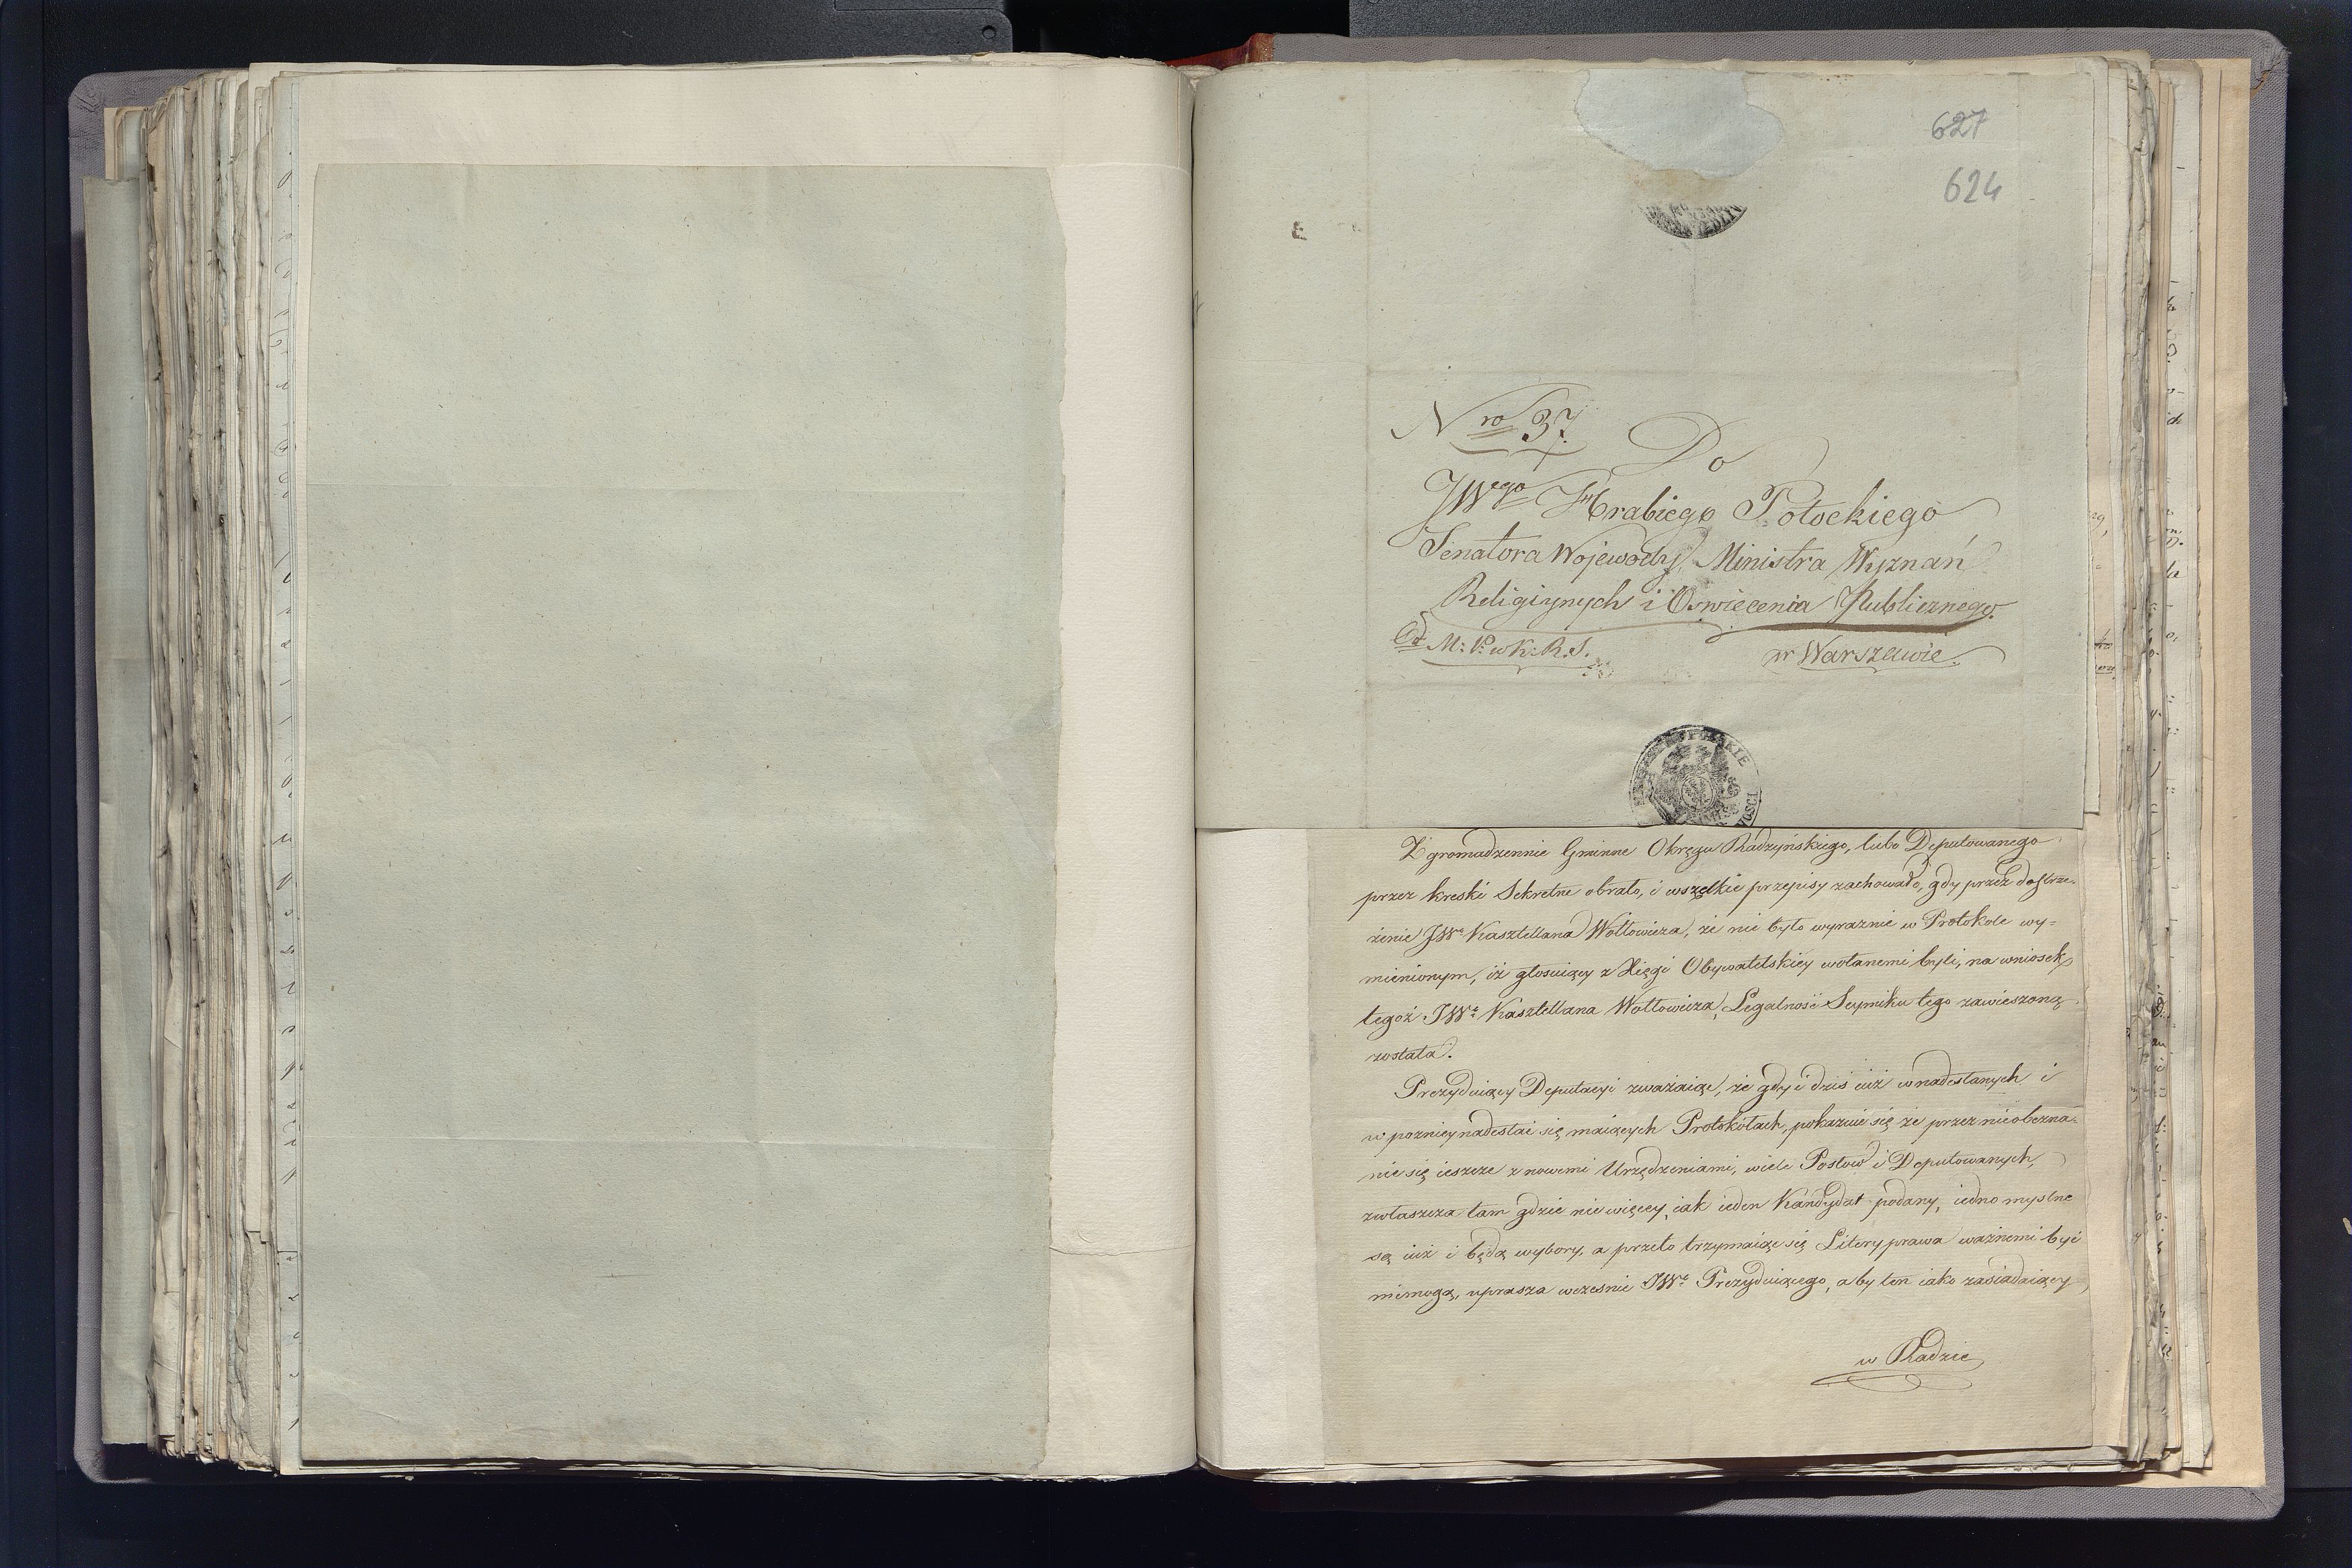 627
624
Nro 37.
Do
JWego Hrabiego Potockiego
Senatora Wojewody, Ministra Wyznań
Religiynych i Oswiecenia Publicznego.
Od M: P: w K: R. S.
w Warszawie.
Zgromadzennie Gminne Okręgu Radzyńskiego, lubo Deputowanego
przez kreski Sekretne obrało, i wszelkie przepisy zachowało, gdy przez dostrze-
żenie JWo Kasztellana Wołłowicza, że nie było wyraznie w Protokole wy=
mienionym, iż głosuiący z Xięgi Obywatelskiey wołanemi byli, na wniosek
tegoż JWo Kasztellana Wołłowicza, Legalność Seymiku tego zawieszoną
została.
Prezyduiący Deputacyi zważaiąc, że gdy i dziś iuż w nadesłanych i
w pozniey nadesłać się maiących Protokółach, pokazuie się że przez nieobezna-
nie się ieszcze z nowemi Urządzeniami, wiele Posłow i Deputowanych,
zwłaszcza tam gdzie nie więcey, iak ieden Kandydat podany, iedno myslne
są iuż i będą wybory, a przeto trzymaiąc się Litery prawa ważnemi być
niemogą, uprasza wczesnie JWo Prezyduiącego, aby ten iako zasiadaiący
w Radzie